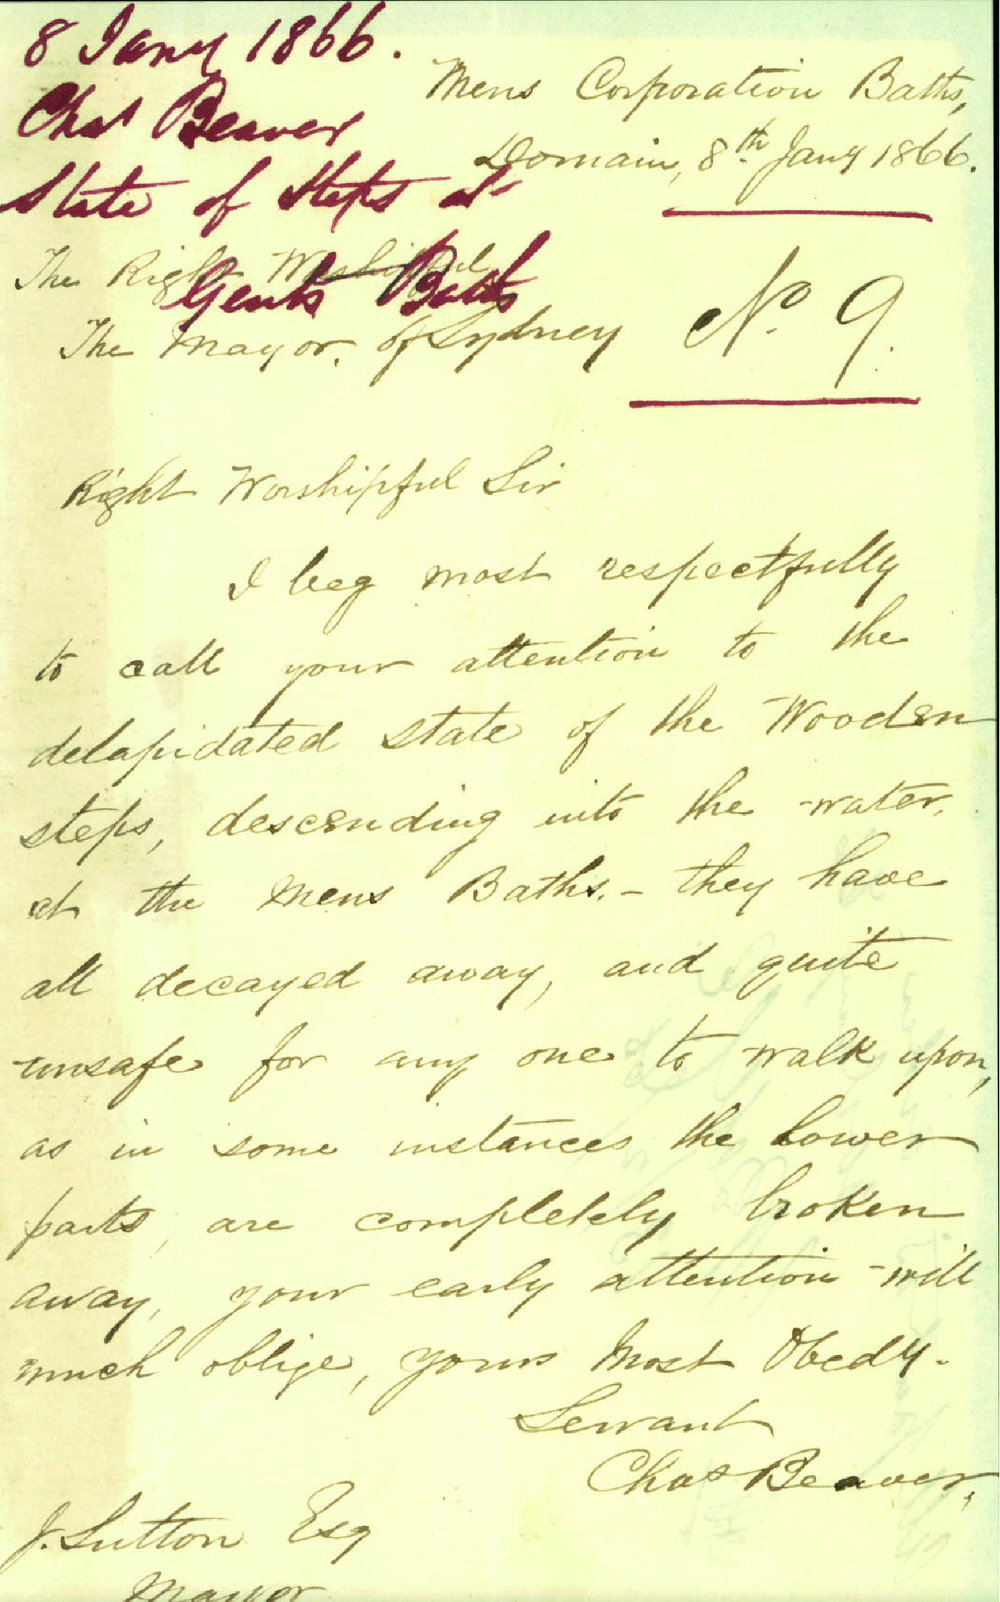 8 Jany 1866.
Chas Beaver
State of Steps at
Gents Baths
Mens Corporation Baths,
Domain, 8th Jany 1866.
The Right Worshipful
The Mayor. of Sydney
No. 9.
Right Worshipful Sir
I beg most respectfully
to call your attention to the
delapidated state of the Wooden
steps, descending into the water,
at the Mens Baths. - they have
all decayed away, and quite
unsafe for any one to walk upon,
as in some instances the lower
parts, are completely broken
away, your early attention will
much oblige, yours Most Obedy.
Servant
Chas Beaver,
J. Sutton Esq
Mayor